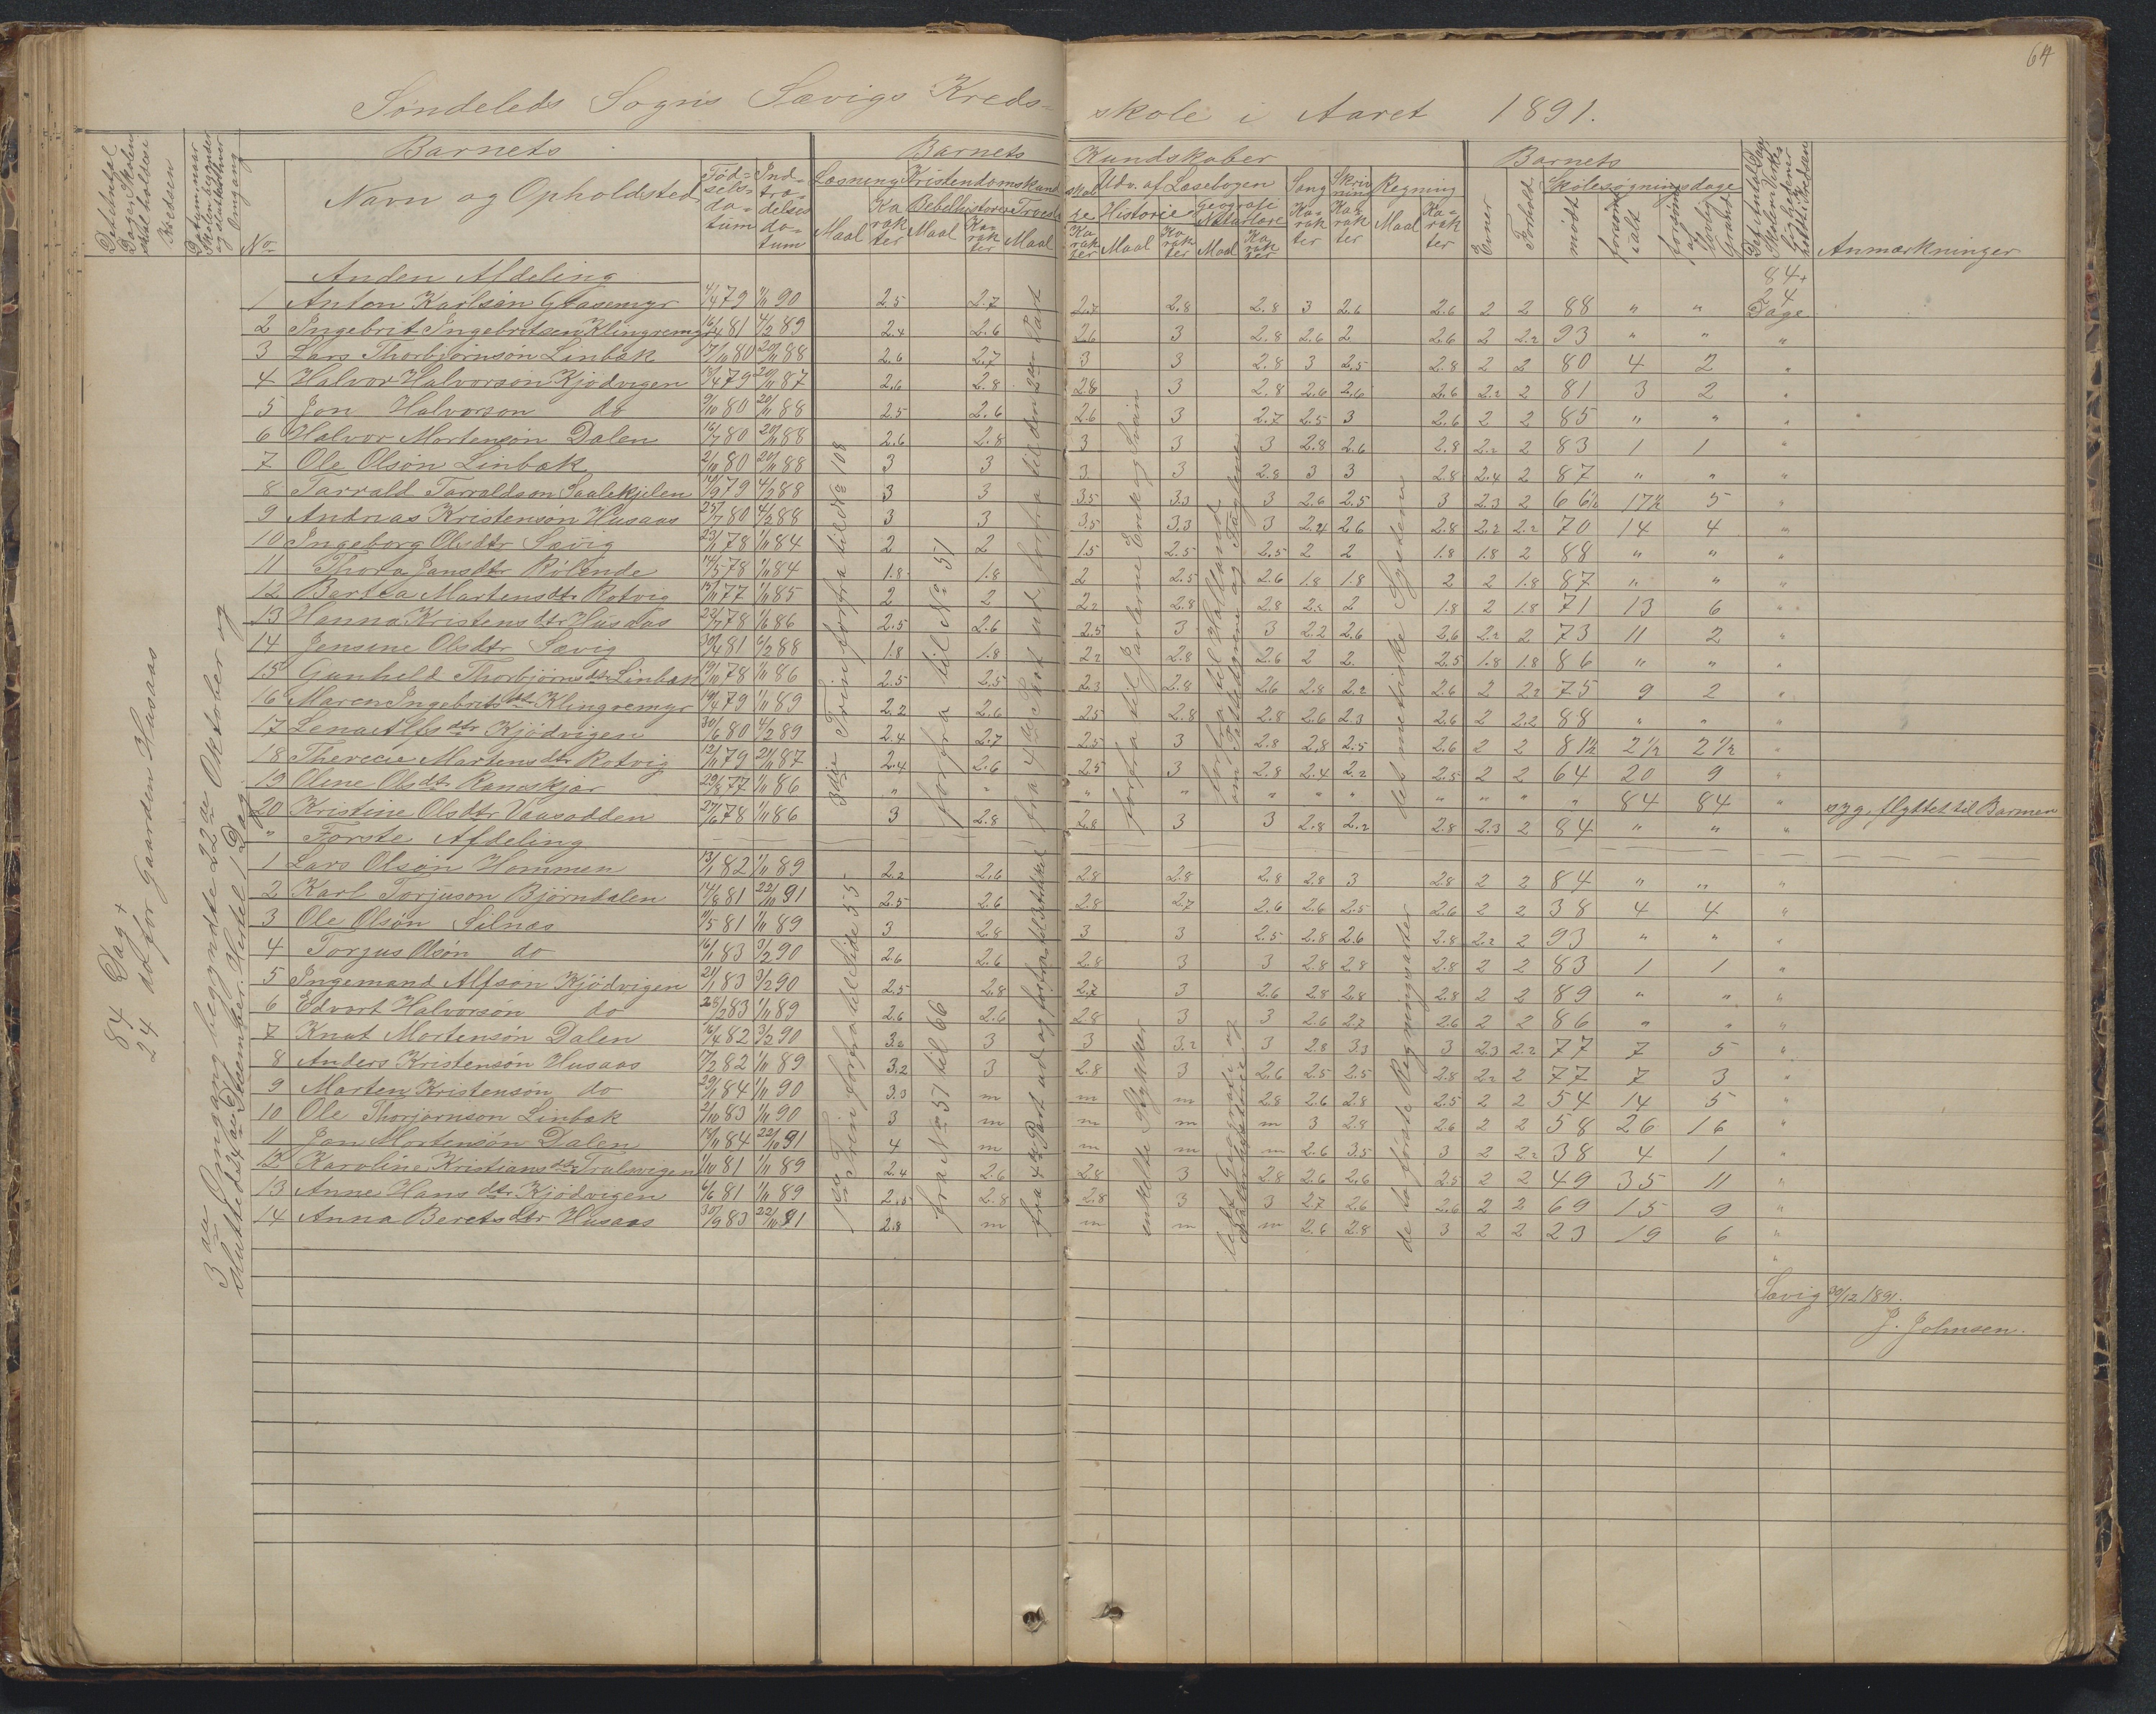 64
Søndeleds Sogns Sævigs Kreds- skole i Aaret 1891.
Det Antal Dage Skolen skal holdes i Kredsen
Datum, naar Skolen begynder og slutter hver Omgang
No
Barnets
Navn og Opholdsted
Fødselsdatum
Indtrædelsesdatum
Barnets Kundskaber
Læsning Maal Karakter
Kristendomskundskab
Bibelhistorie Maal Karakter
Troeslære Maal Karakter
Udv. af Læsebogen
Historie Maal Karakter
Geografi Naturlære Maal Karakter
Sang Karakter
Skrivning Karakter
Regning Maal Karakter
Barnets
Evner
Forhold
Skolesøgningsdage
mødt
forsømt ialt
forsømt af lovlig Grund
Det Antal Dage Skolen i Virkeligheden er holdt i Kredsen
Anmærkninger
84 Dag + 24 do for Gaarden Husaas
3die Omgang begyndte 22de Oktober og sluttede
Anden Afdeling
84 + 24 Dage
1 Anton Karlsøn Glasemyr 4/4 79 1/11 90 2.5 2.7 2.7 2.8 2.8 3 2.6 2.6 2 2 88 " "
2 Ingebrit Ingebritsen Klingremyr 16/4 81 4/2 89 2.4 2.6 2.6 3 2.8 2.6 2 2.6 2 2.2 93 " " "
3 Lars Thorbjørnsøn Linbæk 17/10 80 20/11 88 2.6 2.7 3 3 2.8 3 2.5 2.8 2 2 80 4 2 "
4 Halvor Halvorsøn Kjødvigen 79 87 2.6 2.8 2.8 3 2.8 2.6 2.6 2.6 2.2 2 81 3 2 "
5 Jon Halvorsøn do 9/10 80 20/11 88 2.5 2.6 2.6 3 2.7 2.5 3 2.6 2 2 85 " " "
6 Halvor Mortensøn Dalen 16/7 80 20/11 88 2.6 2.8 3 3 3 2.8 2.6 2.8 2.2 2 83 1 1 "
7 Ole Olsøn Linbæk 2/10 80 20/11 88 3 3 3 3 2.8 3 3 2.8 2.4 2 87 " " "
8 Tarrald Tarraldsøn Saalekjelen 14/9 79 4/2 88 3 3 3.5 3.3 3 2.6 2.5 3 2.3 2 66½ 17½ 5 "
9 Andreas Kristensøn Husaas 25/7 80 4/2 88 3 3 3.5 3.3 3 2.4 2.6 2.8 2.2 2.2 70 14 4 "
10 Ingeborg Olsdtr Sævig 78 1/11 84 2 2 1.5 2.5 2.5 2 2 1.8 1.8 2 88 " " "
11 Thora Jansdtr Rølende 14/5 78 1/11 84 1.8 1.8 2 2.5 2.6 1.8 1.8 2 2 1.8 87 " " "
12 Bertea Martensdtr Rotvig 77 1/11 85 2 2 2.2 2.8 2.8 2.2 2 1.8 2 1.8 71 13 6 "
13 Hanna Kristensdtr Husaas 22/7 78 86 2.5 2.6 2.5 3 3 2.2 2.6 2.6 2.2 2 73 11 2 "
14 Jensine Olsdtr Sævig 30/4 81 6/2 88 1.8 1.8 2.2 2.8 2.6 2 2 2.5 1.8 1.8 86 " " "
15 Gunhild Thorbjørnsdtr Linbæk 19/10 78 1/11 86 2.5 2.5 2.3 2.8 2.6 2.8 2.2 2.6 2 2.2 75 9 2 "
16 Maren Ingebritsdtr Klingremyr 19/4 79 1/11 89 2.2 2.6 2.5 2.8 2.8 2.6 2.3 2.6 2 2.2 88 " " "
17 Lena Alfsdtr Kjødvigen 30/6 80 4/2 89 2.4 2.7 2.5 3 2.8 2.8 2.5 2.6 2 2 81½ 2½ 2½ "
18 Therecie Martensdtr Rotvig 12/10 79 21/11 87 2.4 2.6 2.5 3 2.8 2.4 2.2 2.5 2 2 64 20 9 "
19 Oline Olsdtr Ramskjær 29/8 77 1/11 86 " " " " " " " " " " " 84 84 " syg, flyttet til Barmen
20 Kristine Olsdtr Vaasodden 27/6 78 1/11 86 3 2.8 2.8 3 3 2.8 2.2 2.8 2.3 2 84 " " "
" Første Afdeling
1 Lars Olsøn Hommen 13/1 82 1/11 89 2.2 2.6 2.8 2.8 2.8 2.8 3 2.8 2 2 84 " " "
2 Karl Torjusøn Bjørndalen 14/8 81 22/10 91 2.5 2.6 2.8 2.7 2.6 2.6 2.5 2.6 2 2 38 4 4 "
3 Ole Olsøn Silnæs 81 1/11 89 3 2.8 3 3 2.5 2.8 2.6 2.8 2.2 2 93 " " "
4 Torjus Olsøn do 16/1 83 3/2 90 2.6 2.6 2.8 3 3 2.8 2.8 2.8 2 2 83 1 1 "
5 Ingemand Alfsøn Kjødvigen 21/1 83 3/2 90 2.5 2.8 2.7 3 2.6 2.8 2.8 2.8 2 2 89 " " "
6 Edvart Halvorsøn do 83 1/11 89 2.6 2.6 2.8 3 3 2.6 2.7 2.6 2 2 86 " " "
7 Knut Mortensøn Dalen 16/4 82 3/2 90 3 3 3.2 3 2.8 3.3 3 2.3 2.2 77 7 5 "
8 Anders Kristensøn Husaas 82 1/11 89 3.2 3 2.8 3 2.6 2.5 2.5 2.8 2.2 2 77 7 3 "
9 Marten Kristensøn do 29/1 84 1/11 90 3.3 m m m 2.8 2.6 2.8 2.5 2 2 54 14 5 "
10 Ole Thorjørnsøn Linbæk 2/10 83 1/11 90 3 m m m m 3 2.8 2.6 2 2 58 26 16 "
11 Jon Mortensøn Dalen 84 22/10 91 4 m m m m 2.6 3.5 3 2 2.2 38 4 1 "
12 Karoline Kristiansdtr Tralsvigen 1/10 81 1/11 89 2.4 2.6 2.8 3 2.8 2.6 2.6 2.5 2 2 49 35 11 "
13 Anne Hansdtr Kjødvigen 6/6 81 1/11 89 2.5 2.8 2.8 3 3 2.7 2.6 2.6 2 2 69 15 9 "
14 Anna Beretsdtr Husaas 30/9 83 22/10 91 2.8 m m m m 2.6 2.8 3 2 2 23 19 6 "
3die Trin forfra til Side 108
forfra til No 51
forfra til Jarlerne Erik og Svein
forfra til Holland
det metriske System
1ste Trin forfra til Side 55
fra No 51 til 66
enkelte Stykker
de to første Regningsarter
Sævig 30/12 1891.
J. Johnsen.